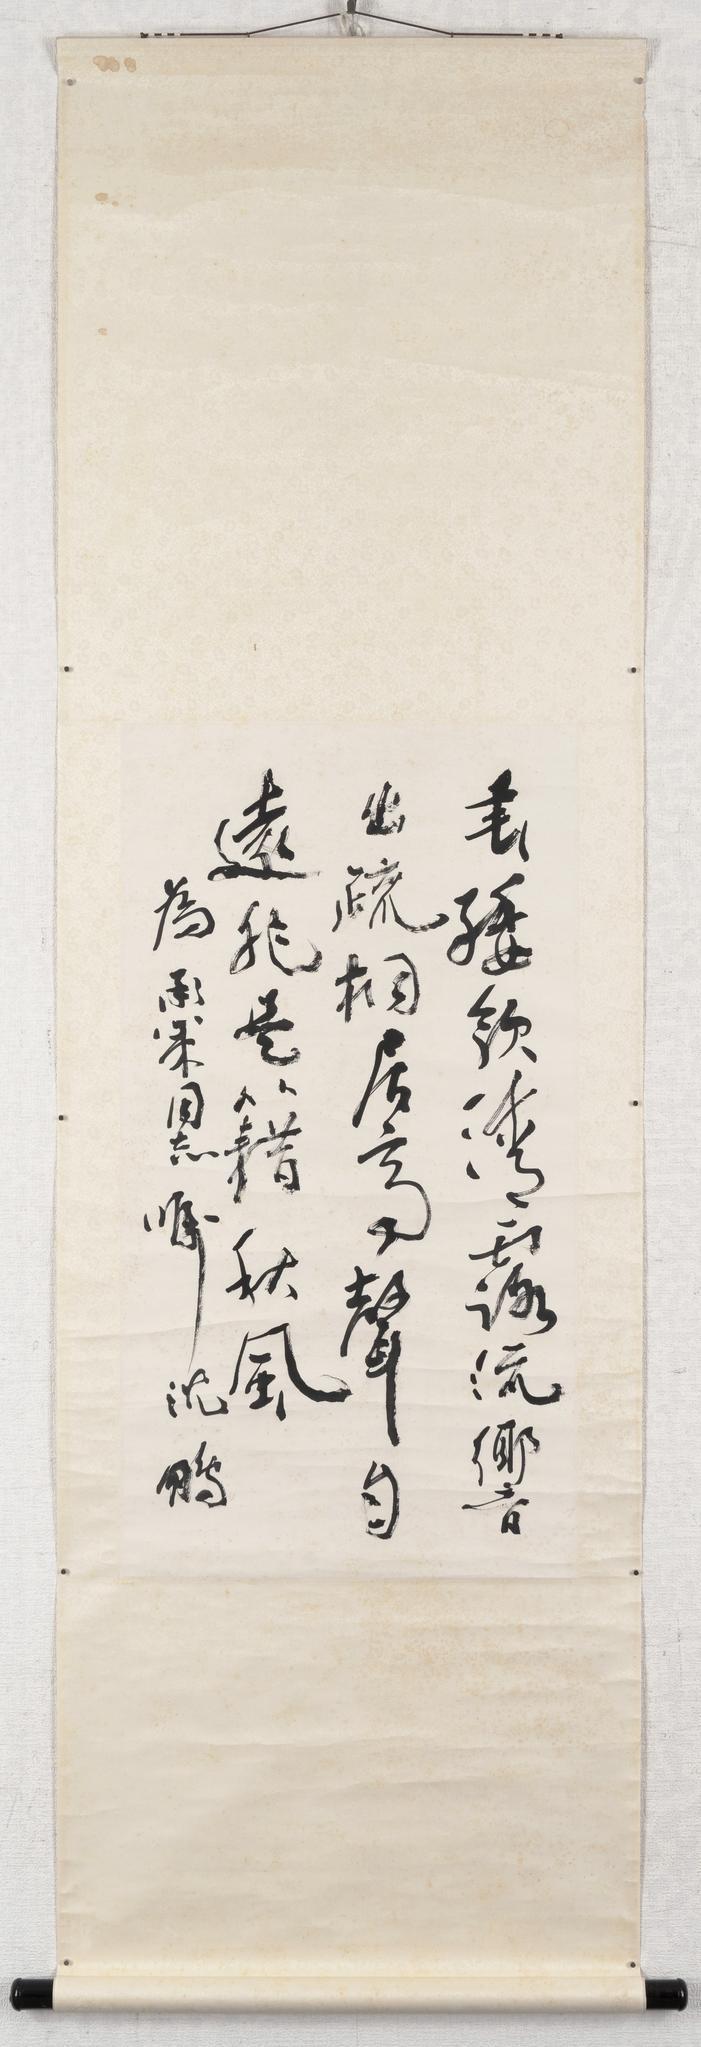 垂緌飲清露流響
出疏桐居高聲自
遠非是籍秋風
為承梁同志嘱
沈鵬